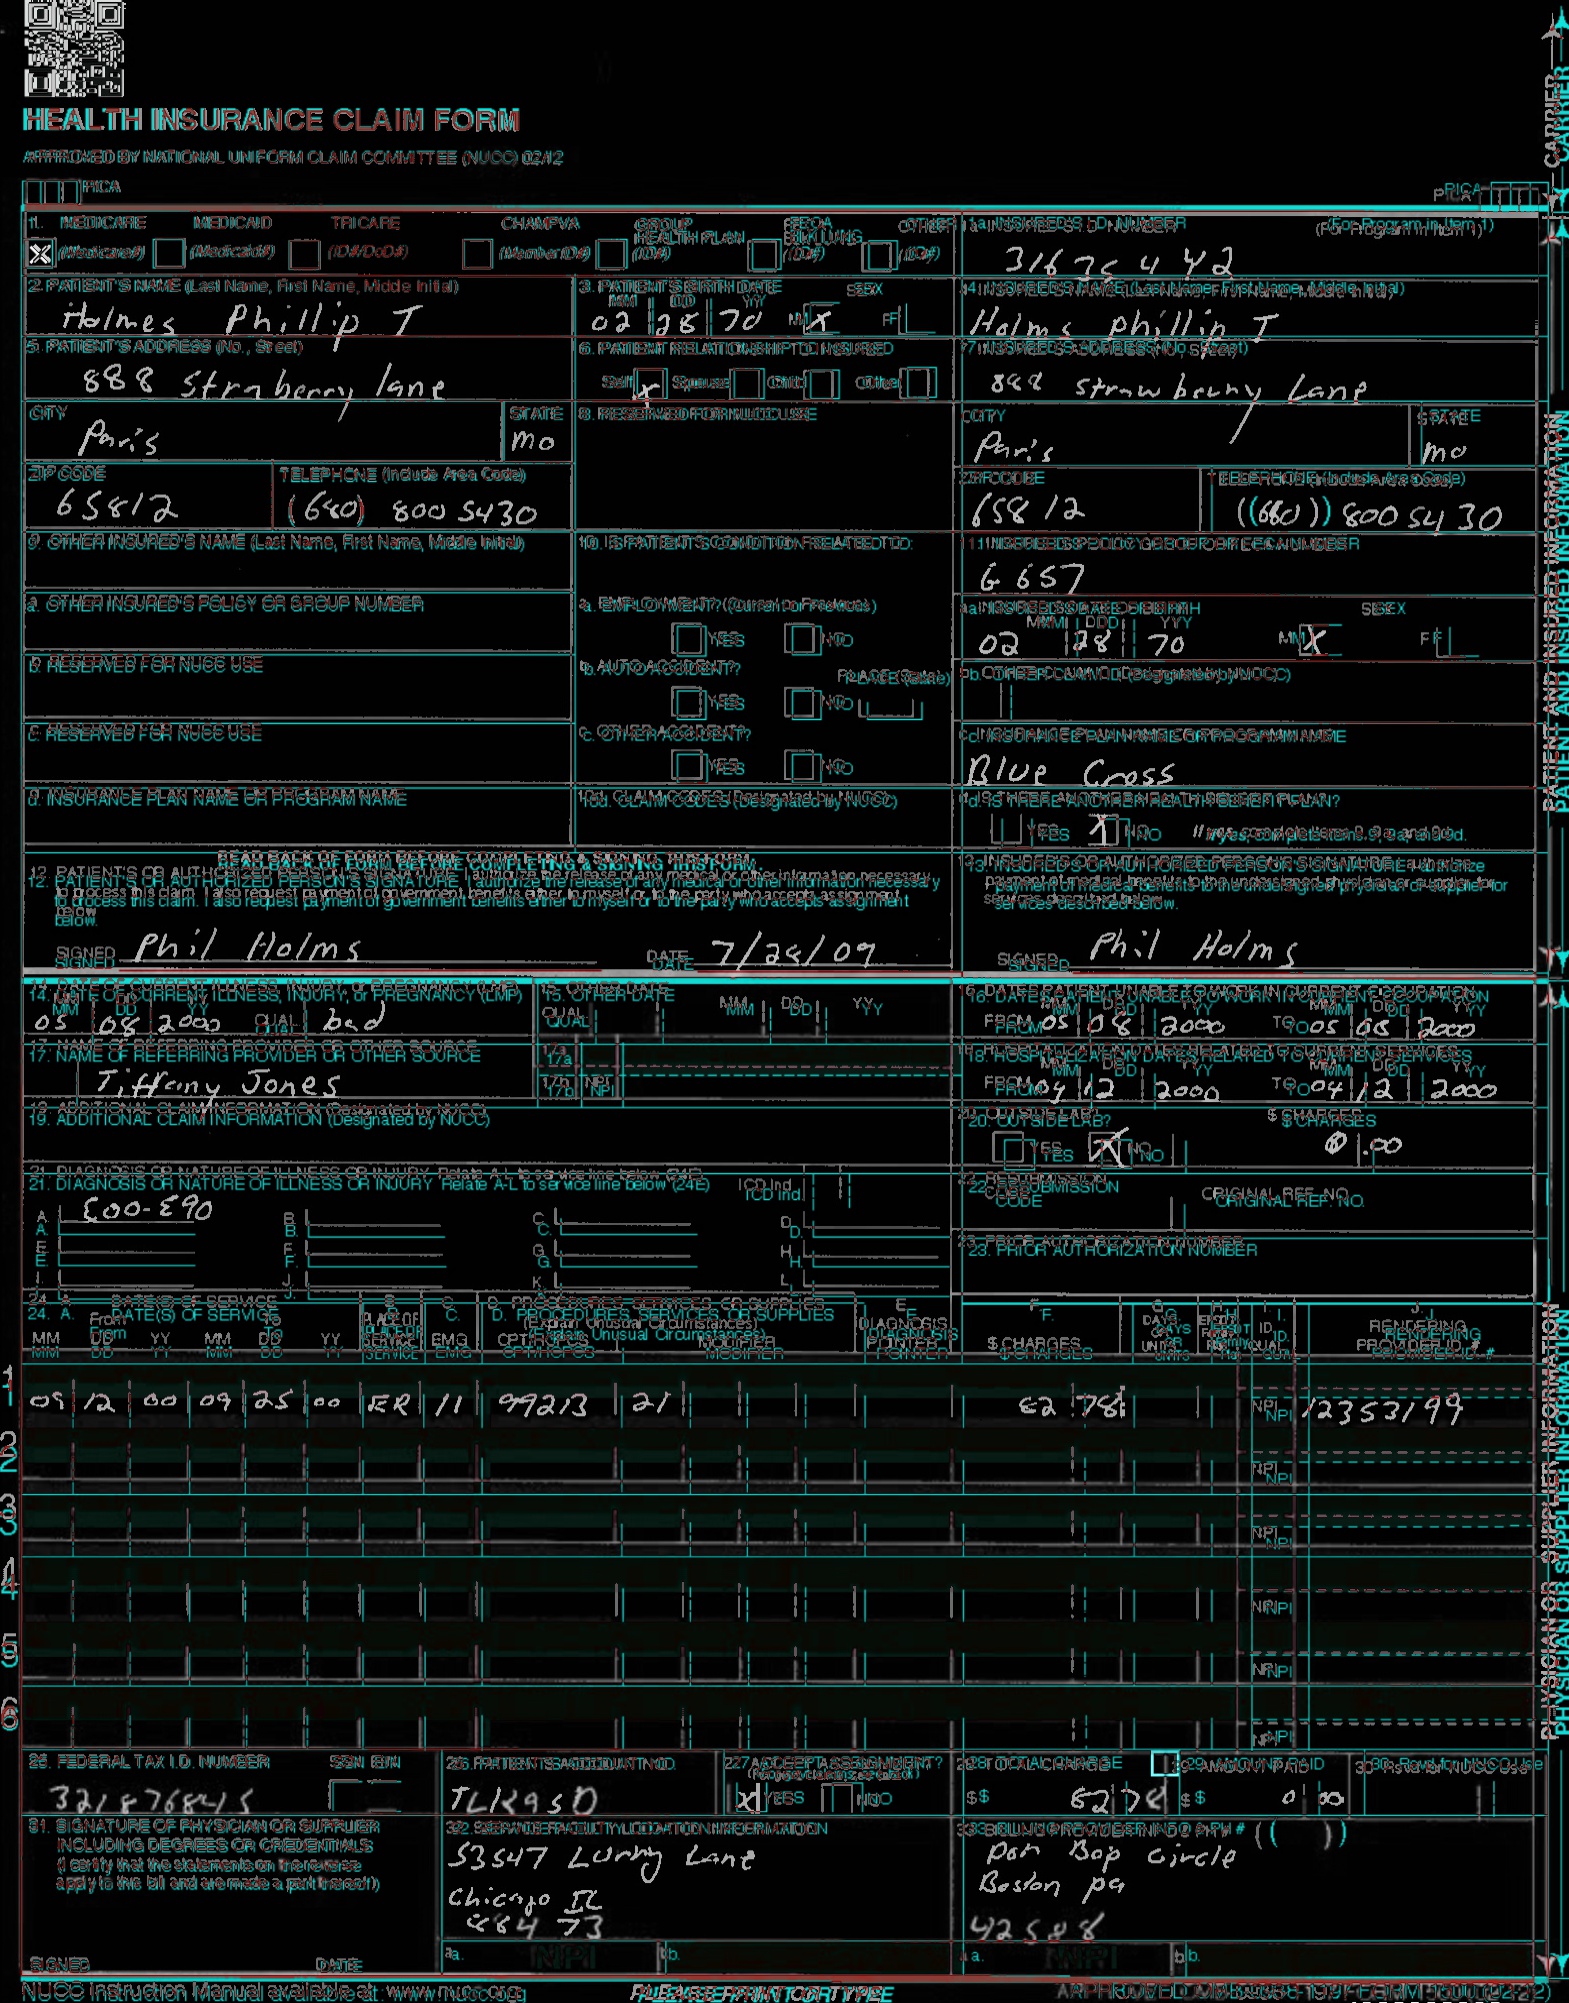 HEALTH INSURANCE CLAIM FORM
APPROVED BY NATIONAL UNIFORM CLAIM COMMITTEE (NUCC) 02/12
PICA PICA
CARRIER
1. MEDICARE MEDICAID TRICARE CHAMPVA GROUP HEALTH PLAN FECA BLK LUNG OTHER
(Medicare#) (Medicaid#) (ID#/DoD#) (Member ID#) (ID#) (ID#) (ID#)
1a. INSURED'S I.D. NUMBER (For Program in Item 1)
2. PATIENT'S NAME (Last Name, First Name, Middle Initial)
Holmes Phillip T
3. PATIENT'S BIRTH DATE SEX
MM DD YY
02 28 70 M X F
4. INSURED'S NAME (Last Name, First Name, Middle Initial)
Holms Phillip T
5. PATIENT'S ADDRESS (No., Street)
888 Straberry lane
6. PATIENT RELATIONSHIP TO INSURED
Self X Spouse Child Other
7. INSURED'S ADDRESS (No., Street)
888 Strawberry Lane
CITY STATE
Paris mo
8. RESERVED FOR NUCC USE
CITY STATE
Paris mo
ZIP CODE TELEPHONE (Include Area Code)
65812 (660) 800 5430
ZIP CODE TELEPHONE (Include Area Code)
65812 (660) 800 5430
9. OTHER INSURED'S NAME (Last Name, First Name, Middle Initial)
10. IS PATIENT'S CONDITION RELATED TO:
11. INSURED'S POLICY GROUP OR FECA NUMBER
G 657
a. OTHER INSURED'S POLICY OR GROUP NUMBER
a. EMPLOYMENT? (Current or Previous)
YES NO
a. INSURED'S DATE OF BIRTH SEX
MM DD YY
02 28 70 M X F
b. RESERVED FOR NUCC USE
b. AUTO ACCIDENT? PLACE (State)
YES NO
b. OTHER CLAIM ID (Designated by NUCC)
c. RESERVED FOR NUCC USE
c. OTHER ACCIDENT?
YES NO
c. INSURANCE PLAN NAME OR PROGRAM NAME
Blue Cross
d. INSURANCE PLAN NAME OR PROGRAM NAME
10d. CLAIM CODES (Designated by NUCC)
d. IS THERE ANOTHER HEALTH BENEFIT PLAN?
YES X NO If yes, complete items 9, 9a, and 9d.
READ BACK OF FORM BEFORE COMPLETING & SIGNING THIS FORM.
12. PATIENT'S OR AUTHORIZED PERSON'S SIGNATURE I authorize the release of any medical or other information necessary
to process this claim. I also request payment of government benefits either to myself or to the party who accepts assignment
below.
SIGNED Phil Holms DATE 7/28/09
13. INSURED'S OR AUTHORIZED PERSON'S SIGNATURE I authorize
payment of medical benefits to the undersigned physician or supplier for
services described below.
SIGNED Phil Holms
PATIENT AND INSURED INFORMATION
14. DATE OF CURRENT ILLNESS, INJURY, or PREGNANCY (LMP)
MM DD YY
05 08 2000 QUAL. bad
15. OTHER DATE
QUAL. MM DD YY
16. DATES PATIENT UNABLE TO WORK IN CURRENT OCCUPATION
MM DD YY MM DD YY
FROM 05 08 2000 TO 05 08 2000
17. NAME OF REFERRING PROVIDER OR OTHER SOURCE
Tiffany Jones
17a.
17b. NPI
18. HOSPITALIZATION DATES RELATED TO CURRENT SERVICES
MM DD YY MM DD YY
FROM 04 12 2000 TO 04 12 2000
19. ADDITIONAL CLAIM INFORMATION (Designated by NUCC)
20. OUTSIDE LAB? $ CHARGES
YES X NO 0 .00
21. DIAGNOSIS OR NATURE OF ILLNESS OR INJURY Relate A-L to service line below (24E) ICD Ind.
A. E00-E90 B. C. D.
E. F. G. H.
I. J. K. L.
22. RESUBMISSION CODE ORIGINAL REF. NO.
23. PRIOR AUTHORIZATION NUMBER
24. A. DATE(S) OF SERVICE
From To
MM DD YY MM DD YY
B. PLACE OF SERVICE
C. EMG
D. PROCEDURES, SERVICES, OR SUPPLIES
(Explain Unusual Circumstances)
CPT/HCPCS MODIFIER
E. DIAGNOSIS POINTER
F. $ CHARGES
G. DAYS OR UNITS
H. EPSDT
I. ID. QUAL.
J. RENDERING PROVIDER ID. #
1 09 12 00 09 25 00 ER 11 99213 21 62 78 NPI 12353199
2 NPI
3 NPI
4 NPI
5 NPI
6 NPI
PHYSICIAN OR SUPPLIER INFORMATION
25. FEDERAL TAX I.D. NUMBER SSN EIN
321876845
26. PATIENT'S ACCOUNT NO.
27. ACCEPT ASSIGNMENT?
X YES NO
28. TOTAL CHARGE
$ 62 78
29. AMOUNT PAID
$ 0 00
30. Rsvd for NUCC Use
31. SIGNATURE OF PHYSICIAN OR SUPPLIER
INCLUDING DEGREES OR CREDENTIALS
(I certify that the statements on the reverse
apply to this bill and are made a part thereof.)
SIGNED DATE
32. SERVICE FACILITY LOCATION INFORMATION
53547 Lane
Chicago IL
88473
a. NPI b.
33. BILLING PROVIDER INFO & PH # ( )
Bop Circle
Boston pa
42588
a. NPI b.
NUCC Instruction Manual available at: www.nucc.org
PLEASE PRINT OR TYPE